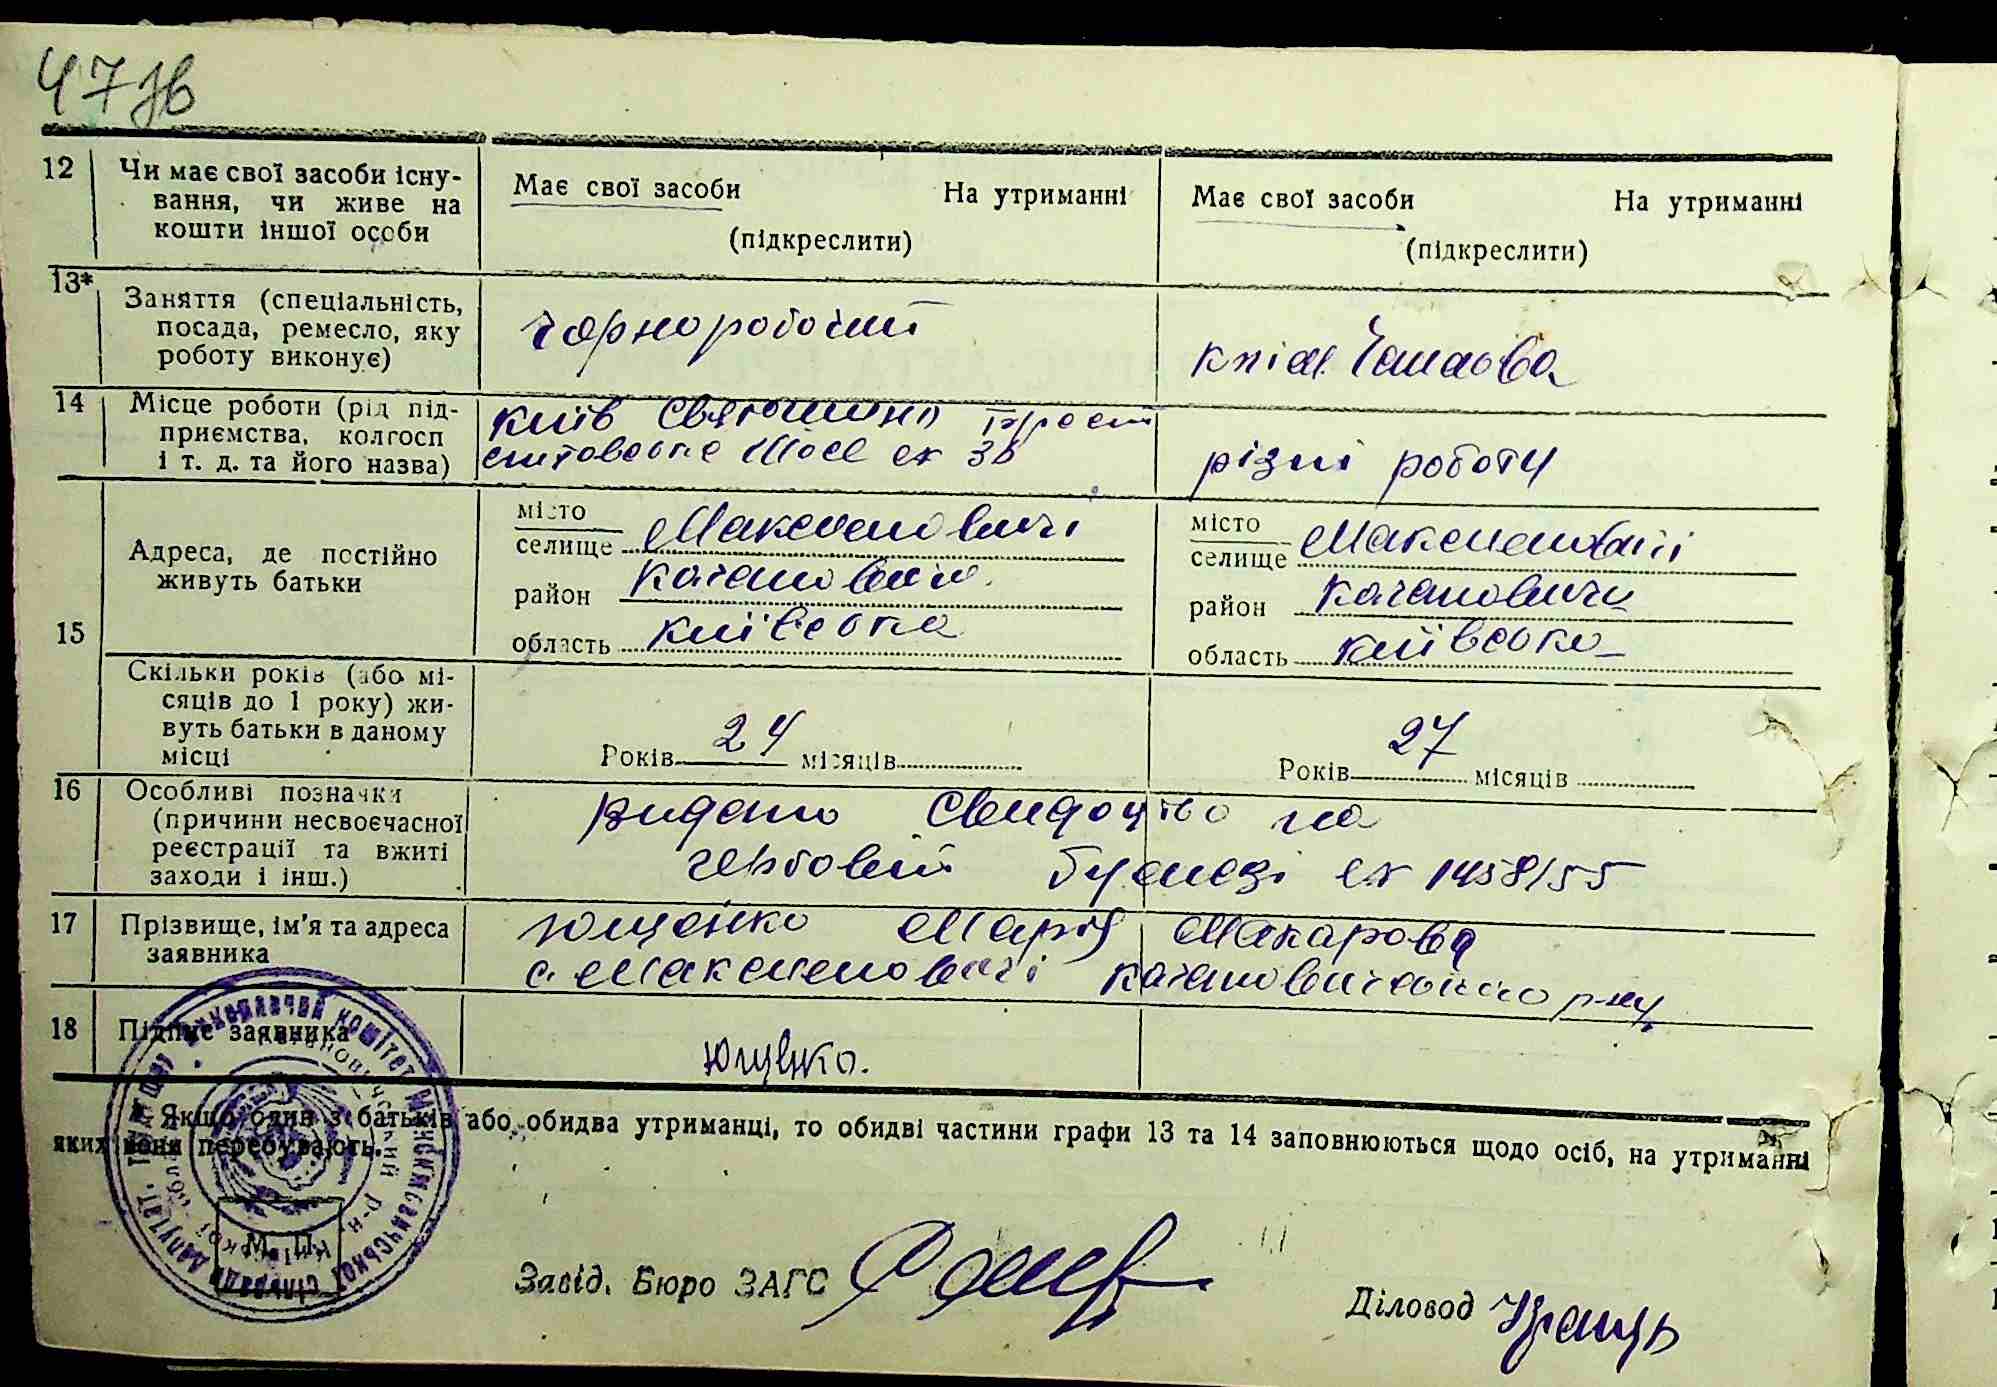 47
12 Чи має свої засоби існу-
вання, чи живе на
кошти іншої особи
Має свої засоби На утриманні
(підкреслити)
Має свої засоби На утриманні
(підкреслити)
13*
Заняття (спеціальність,
посада, ремесло, яку
роботу виконує)
чорноробочий
к-п ім. Чапаєва
14 Місце роботи (рід під-
приємства, колгосп
і т. д. та його назва)
Київ Святошино трест
різні роботи
15
Адреса, де постійно
живуть батьки
місто
селище Максимовичі
район Каганович
область Київська
місто
селище Максимовичі
район Кагановичи
область Київська
Скільки років (або мі-
сяців до 1 року) жи-
вуть батьки в даному
місці
Років 24 місяців
Років 27 місяців
16 Особливі позначки
(причини несвоєчасної
реєстрації та вжиті
заходи і інш.)
видано свидоцтво на
гербовій бумезі 1458/55
17 Прізвище, ім'я та адреса
заявника
Ющенко Марія Макаровa
с. Максимовичі Кагановичського р-ну
18 Підпис заявника
Ющенко.
* Якщо один з батьків або обидва утриманці, то обидві частини графи 13 та 14 заповнюються щодо осіб, на утриманні
яких вони перебувають.
М. П.
Завід. Бюро ЗАГС
Діловод